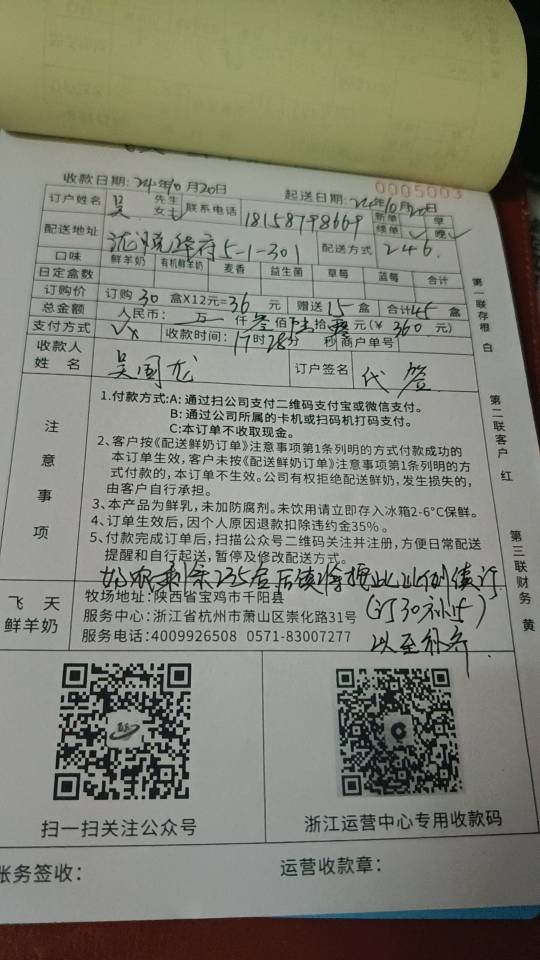 0005003
收款日期:24年10月20日 起送日期:24年10月20日
订户姓名 吴 先生 女士 联系电话 18158798669 新单 续单 早 晚
配送地址 华府5-1-301 配送方式 246.
口味 鲜羊奶 有机鲜羊奶 麦香 益生菌 草莓 蓝莓 合计
日定盒数
订购价 订购 30 盒X12元=36 元 赠送 15 盒 合计45盒
总金额 人民币: 万 仟 叁佰陆拾零元(¥ 360 元)
支付方式 收款时间:17时28分 秒 商户单号
收款人 姓名 吴国龙 订户签名 代签
注意事项
1.付款方式:A:通过扫公司支付二维码支付宝或微信支付。
B:通过公司所属的卡机或扫码机打码支付。
C:本订单不收取现金。
2、客户按《配送鲜奶订单》注意事项第1条列明的方式付款成功的
本订单生效,客户未按《配送鲜奶订单》注意事项第1条列明的方
式付款的,本订单不生效。公司有权拒绝配送鲜奶,发生损失的,
由客户自行承担。
3、本产品为鲜乳,未加防腐剂。未饮用请立即存入冰箱2-6°C保鲜。
4、订单生效后,因个人原因退款扣除违约金35%。
5、付款完成订单后,扫描公众号二维码关注并注册,方便日常配送
提醒和自行起送,暂停及修改配送方式。
剩余235盒后续 按此比例续订
(订30补15)
以至补齐
飞天
鲜羊奶
牧场地址:陕西省宝鸡市千阳县
服务中心:浙江省杭州市萧山区崇化路31号
服务电话:4009926508 0571-83007277
第一联存根 白
第二联客户 红
第三联财务 黄
扫一扫关注公众号 浙江运营中心专用收款码
账务签收: 运营收款章: